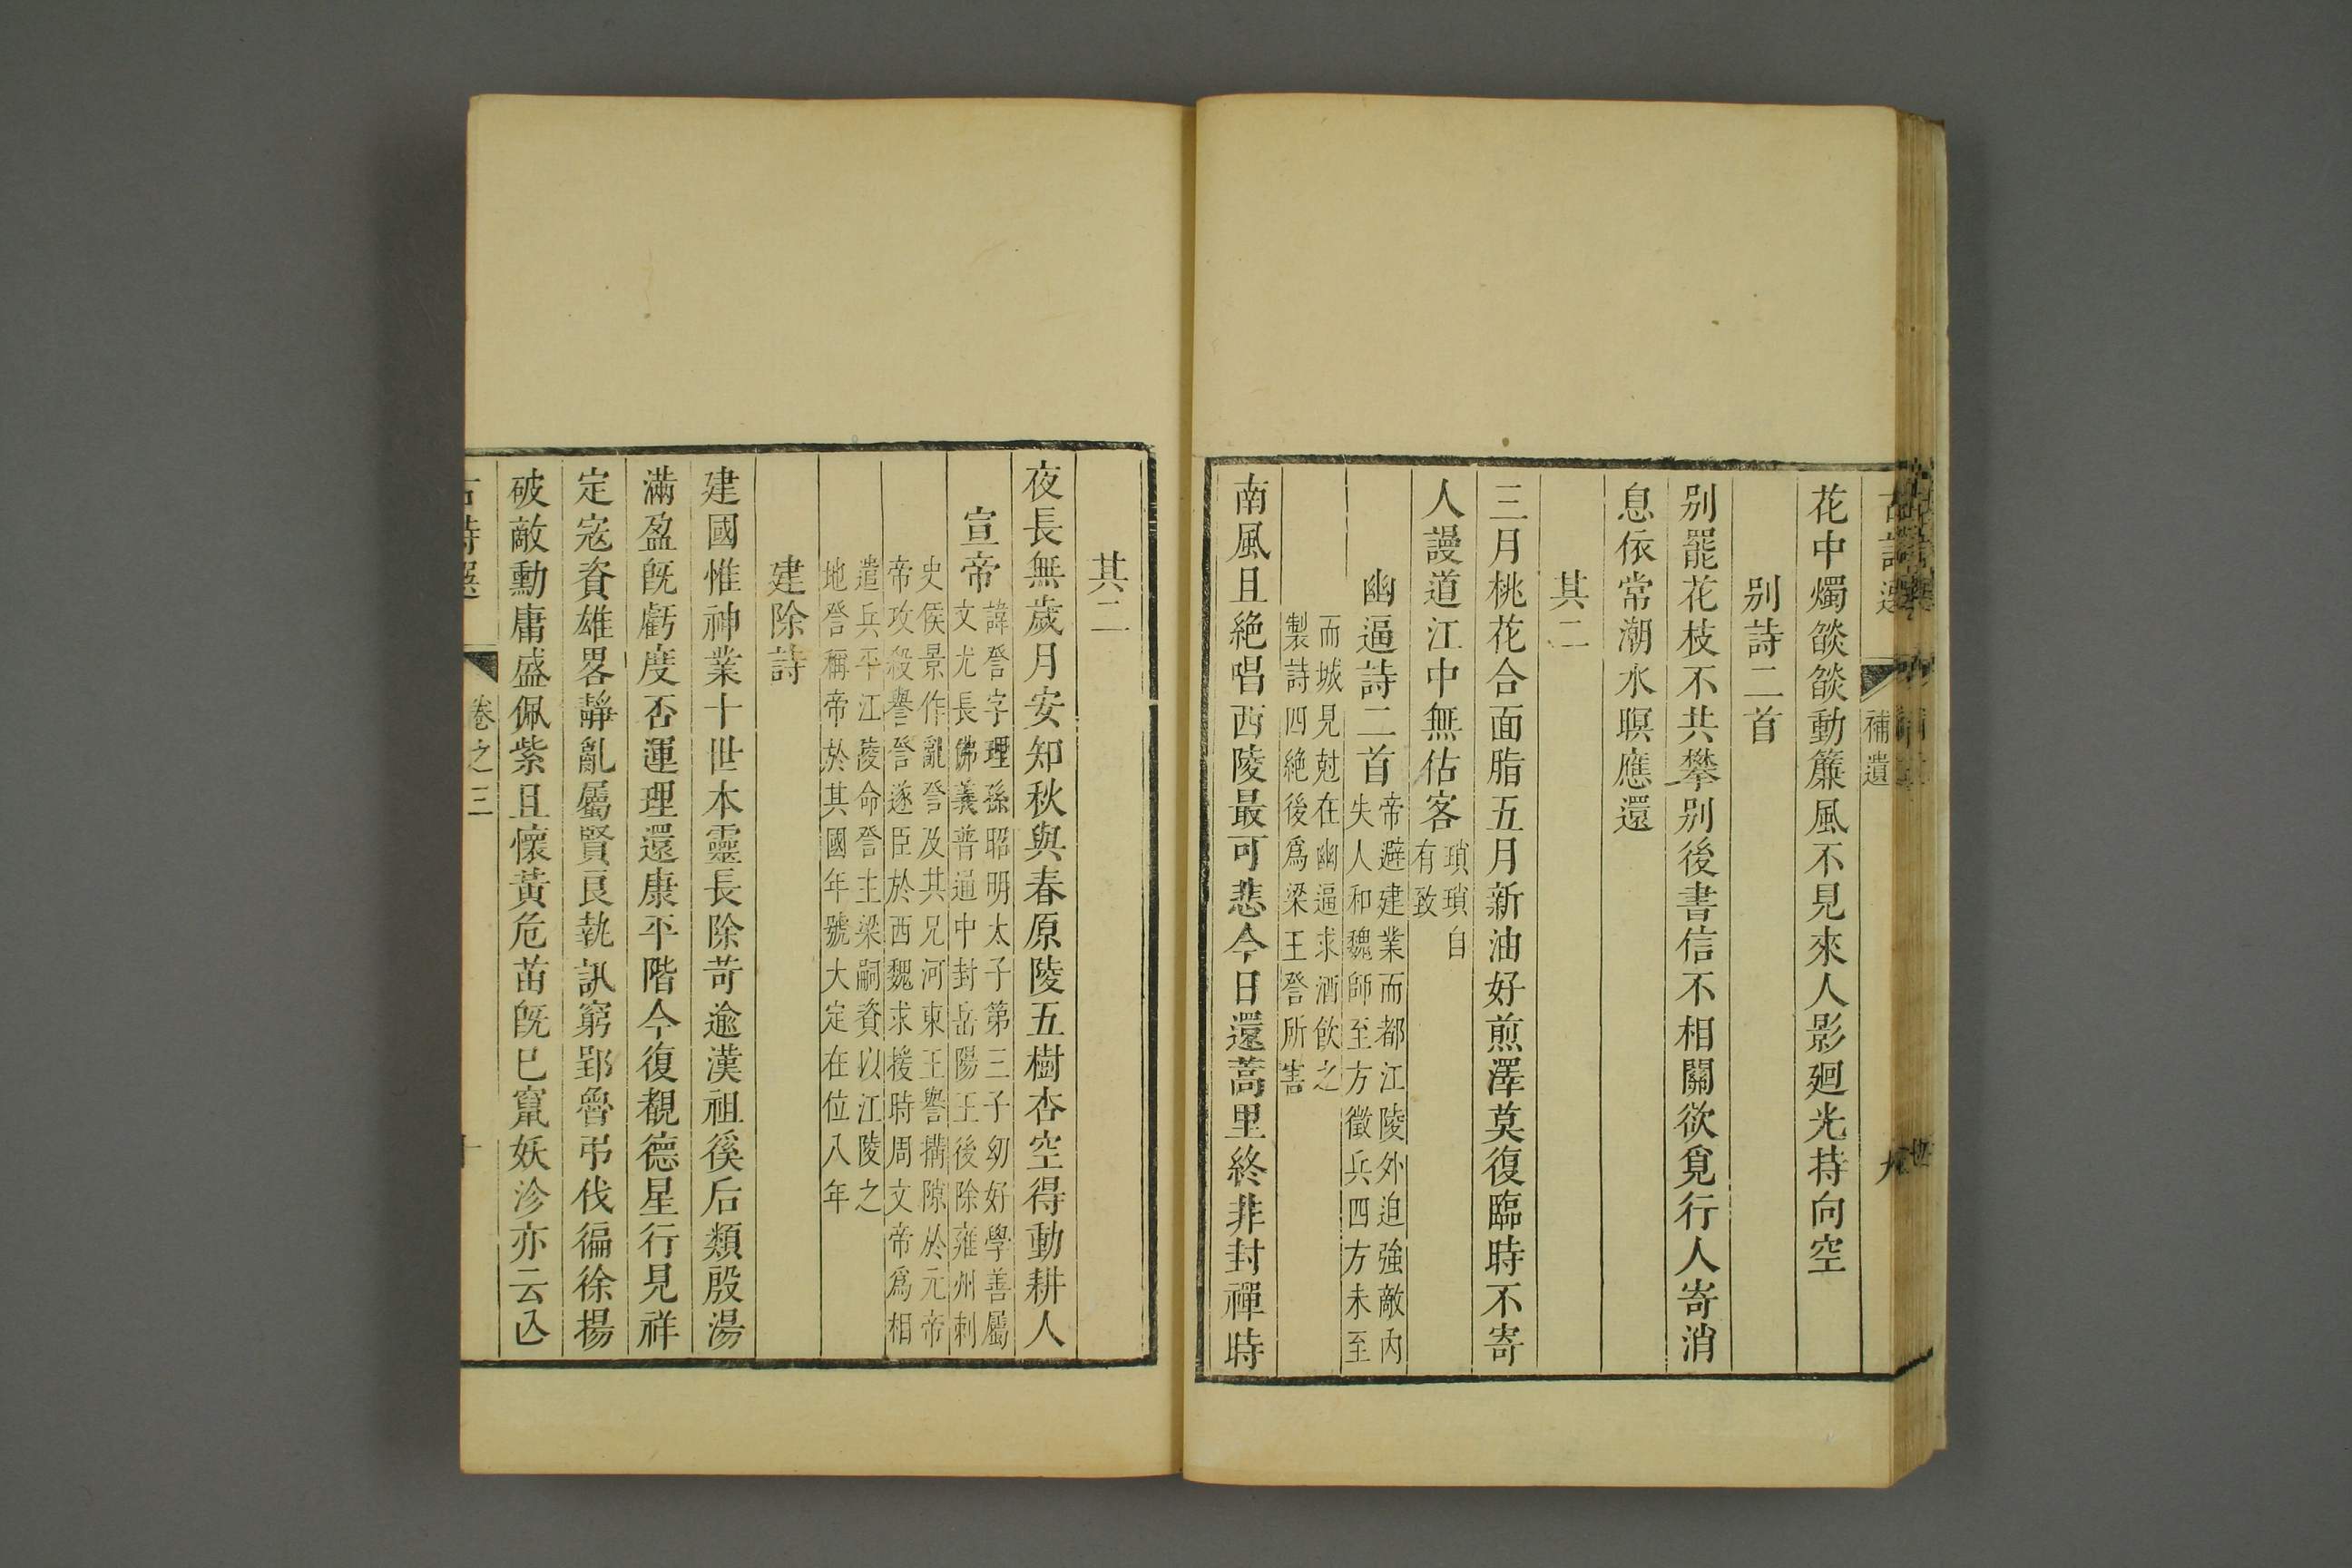 補遺
花中燭燄燄動簾風不見來人影廻光持向空
別詩二首
別罷花枝不共攀別後書信不相關欲覓行人寄消
息依常潮水暝應還
其二
三月桃花合面脂五月新油好煎澤莫復臨時不寄
人謾道江中無估客
瑣瑣自
有致
幽逼詩二首
帝避建業而都江陵外迫強敵内
失人和魏師至方徵兵四方未至
而城見尅在幽逼求酒飲之
製詩四絶後爲梁王詧所害
南風且絶唱西陵最可悲今日還蒿里終非封禪時
其二
夜長無歲月安知秋與春原陵五樹杏空得動耕人
宣帝
諱詧字理孫昭明太子第三子㓜好學善屬
文尤長佛義普通中封岳陽王後除雍州刺
史侯景作亂詧及其兄河東王譽搆隙於元帝
帝攻殺譽詧遂臣於西魏求援時周文帝爲相
遣兵平江陵命詧主梁嗣資以江陵之
地詧稱帝於其國年號大定在位八年
建除詩
建國惟神業十世本靈長除苛逾漢祖徯后類殷湯
滿盈旣虧度否運理還康平階今復覩德星行見祥
定寇資雄畧靜亂屬賢良執訊窮郢魯弔伐徧徐揚
破敵勳庸盛佩紫且懷黃危苗旣已竄妖沴亦云亾
古詩選
卷之三
十